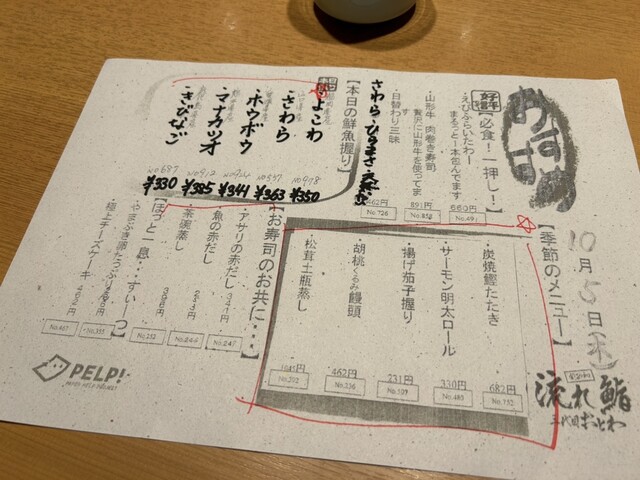 おすすめ
10月5日(木)
流れ鮨
三代目おとわ
好評
【必食!一押し!】
・えびふらいたわー
まるごと一本包んでます
660円
No.691
・山形牛 肉巻き寿司
贅沢に山形牛を使ってます
891円
・日替わり三昧
さわら・ひらまさ・
462円
No.726
【本日の鮮魚握り】
・よこわ
No.978
¥350
・さわら
No.537
¥363
・ホウボウ
¥344
・マナカツオ
No.912
¥385
・きびなご
No.687
¥330
【季節のメニュー】
・炭焼鰹たたき
682円
No.152
・サーモン明太ロール
330円
No.480
・揚げ茄子握り
231円
No.107
・胡桃くるみ饅頭
462円
No.236
・松茸土瓶蒸し
No.202
【お寿司のお共に…】
・アサリの赤だし
341円
No.247
・魚の赤だし
No.244
・茶碗蒸し
No.252
【ほっと一息…すぃーつ】
・やまぶき
・極上チーズケーキ
PELP!